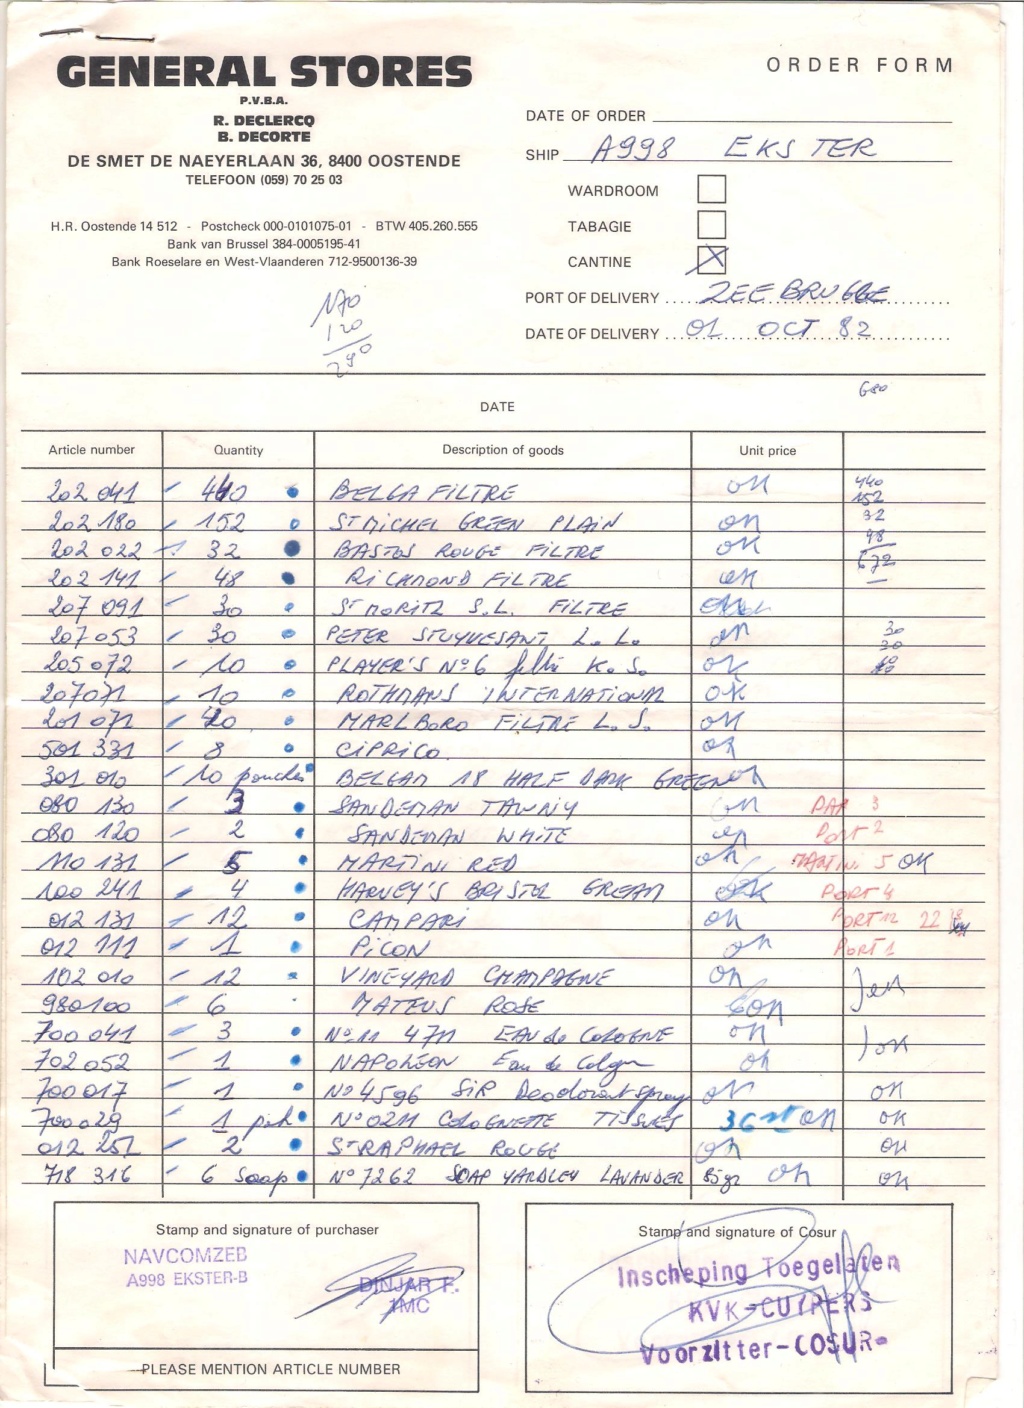 GENERAL STORES
P.V.B.A.
R. DECLERCQ
B. DECORTE
DE SMET DE NAEYERLAAN 36, 8400 OOSTENDE
TELEFOON (059) 70 25 03
H.R. Oostende 14 512 - Postcheck 000-0101075-01 - BTW 405.260.555
Bank van Brussel 384-0005195-41
Bank Roeselare en West-Vlaanderen 712-9500136-39
170
120
290
ORDER FORM
DATE OF ORDER
SHIP A998 EKSTER
WARDROOM
TABAGIE
CANTINE X
PORT OF DELIVERY ZEEBRUGGE
DATE OF DELIVERY 01 OCT 82
680
DATE
Article number Quantity Description of goods Unit price
202 041 440 BELGA FILTRE OK 440
202 180 152 ST MICHEL GREEN PLAIN OK 152
202 022 32 BASTOS ROUGE FILTRE OK 32
202 141 48 RICHMOND FILTRE OK 48
672
207 091 30 ST MORITZ S.L. FILTRE
207 053 30 PETER STUYVESANT L.L. OK 30
205 072 10 PLAYER'S No 6 filtre K.S. OK 30
207071 10 ROTHMANS INTERNATIONAL OK
201 071 40 MARLBORO FILTRE L.S. OK
501 331 8 CIPRICO OK
301 010 10 pouches BELGAM 18 HALF DARK GREEN OK
080 130 3 SANDEMAN TAWNY OK 3
080 120 2 SANDEMAN WHITE OK Port 2
110 131 5 MARTINI RED OK MARTINI 5 OK
100 241 4 HARVEY'S BRISTOL CREAM OK PORT 4
012 131 12 CAMPARI OK PORT 12 22
012 111 1 PICON OK PORT 1
102 010 12 VINEYARD CHAMPAGNE OK
980100 6 MATEUS ROSE 6 OK
700 041 3 No 11 4711 EAU de COLOGNE OK
702 052 1 NAPOLEON Eau de Cologne OK OK
700 017 1 No 4596 SIR Deodorant spray OK OK
700 029 1 pak No 0211 COLOGNETTE TISSUES 36 st OK OK
012 251 2 ST RAPHAEL ROUGE OK OK
718 316 6 soap No 7262 SOAP YARDLEY LAVANDER 85 gr OK OK
Stamp and signature of purchaser
NAVCOMZEB
A998 EKSTER-B
DINJAR F.
1MC
PLEASE MENTION ARTICLE NUMBER
Stamp and signature of Cosur
Inscheping Toegelaten
KVK-CUYPERS
Voorzitter-COSUR-